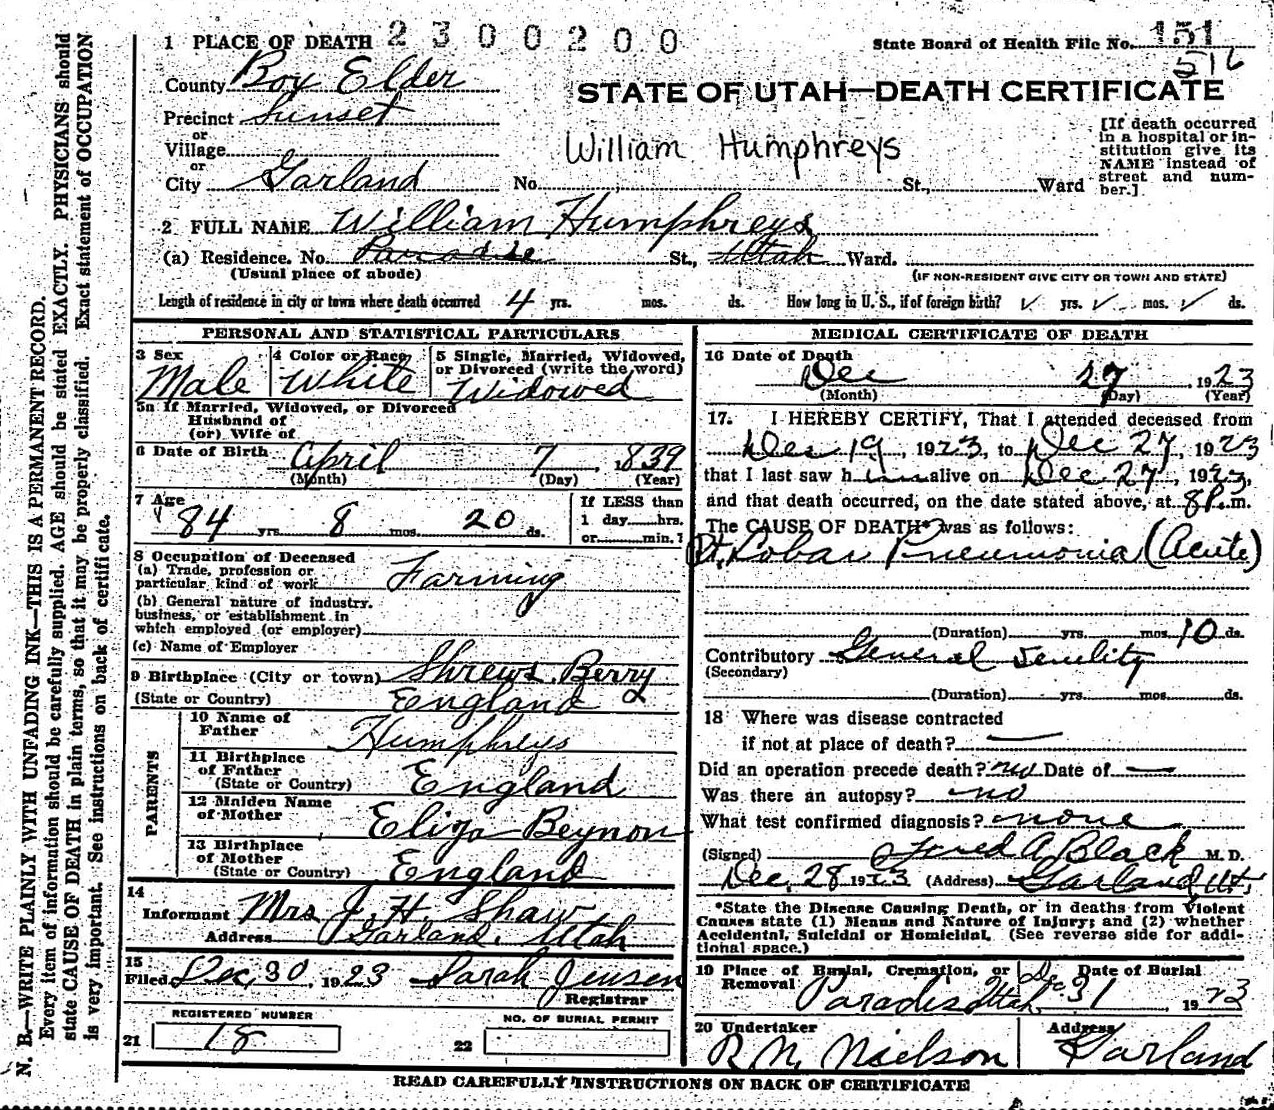 1 PLACE OF DEATH 2300200
State Board of Health File No. 151
516
County Box Elder
STATE OF UTAH—DEATH CERTIFICATE
Precinct Sunset
or
Village
or
City Garland No. St., Ward
William Humphreys
[If death occurred
in a hospital or in-
stitution give its
NAME instead of
street and num-
ber.]
2 FULL NAME William Humphreys
(a) Residence. No. Paradise St., Utah Ward.
(Usual place of abode) (IF NON-RESIDENT GIVE CITY OR TOWN AND STATE)
Length of residence in city or town where death occurred 4 yrs. mos. ds. How long in U. S., if of foreign birth? ✓ yrs. ✓ mos. ✓ ds.
PERSONAL AND STATISTICAL PARTICULARS
3 Sex
Male
4 Color or Race
White
5 Single, Married, Widowed,
or Divorced (write the word)
Widowed
5a If Married, Widowed, or Divorced
Husband of
(or) Wife of
6 Date of Birth April 7, 1839
(Month) (Day) (Year)
7 Age
84 yrs. 8 mos. 20 ds.
If LESS than
1 day hrs.
or min.?
8 Occupation of Deceased
(a) Trade, profession or
particular kind of work Farming
(b) General nature of industry,
business, or establishment in
which employed (or employer)
(c) Name of Employer
9 Birthplace (City or town) Shrews Berry
(State or Country) England
PARENTS
10 Name of
Father Humphreys
11 Birthplace
of Father
(State or Country) England
12 Maiden Name
of Mother Eliza Beynon
13 Birthplace
of Mother
(State or Country) England
14
Informant Mrs J. H. Shaw
Address Garland, Utah
15
Filed Dec, 30, 1923 Sarah Jensen
Registrar
REGISTERED NUMBER
21 18
NO. OF BURIAL PERMIT
22
MEDICAL CERTIFICATE OF DEATH
16 Date of Death
Dec 27, 1923
(Month) (Day) (Year)
17. I HEREBY CERTIFY, That I attended deceased from
Dec 19, 1923, to Dec 27, 1923
that I last saw him alive on Dec 27, 1923,
and that death occurred, on the date stated above, at 8 P. m.
The CAUSE OF DEATH* was as follows:
Rt. Lobar Pneumonia (Acute)
(Duration) yrs. mos. 10 ds.
Contributory General Senility
(Secondary)
(Duration) yrs. mos. ds.
18 Where was disease contracted
if not at place of death? —
Did an operation precede death? no Date of —
Was there an autopsy? no
What test confirmed diagnosis? none
(Signed) Black M. D.
Dec, 28 1923 (Address) Garland Ut.
*State the Disease Causing Death, or in deaths from Violent
Causes state (1) Means and Nature of Injury; and (2) whether
Accidental, Suicidal or Homicidal. (See reverse side for addi-
tional space.)
19 Place of Burial, Cremation, or
Removal
Paradise Utah
Date of Burial
Dec 31 1923
20 Undertaker
R. N. Nielson
Address
Garland
READ CAREFULLY INSTRUCTIONS ON BACK OF CERTIFICATE
N. B.—WRITE PLAINLY WITH UNFADING INK—THIS IS A PERMANENT RECORD.
Every item of information should be carefully supplied. AGE should be stated EXACTLY. PHYSICIANS should
state CAUSE OF DEATH in plain terms, so that it may be properly classified. Exact statement of OCCUPATION
is very important. See instructions on back of certificate.